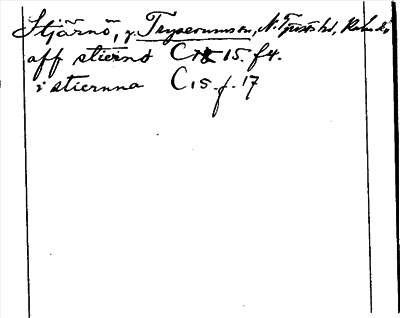 Stjärnö, g. Thyserumsön, N. Tjust hd, Kalm. l.
aff stiernö C 15. f 4.
i stiernna C 15. f. 17